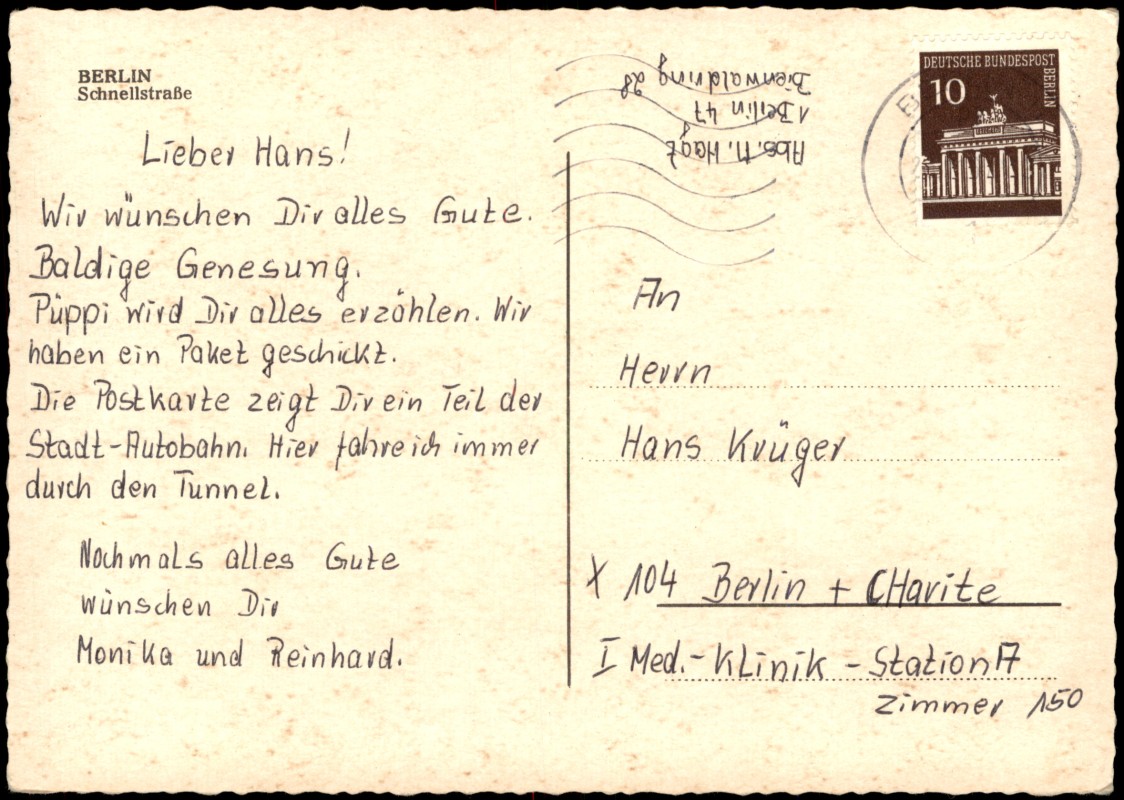 BERLIN
Schnellstraße
Lieber Hans!
Wir wünschen Dir alles Gute.
Baldige Genesung.
Püppi wird Dir alles erzählen. Wir
haben ein Paket geschickt.
Die Postkarte zeigt Dir ein Teil der
Stadt-Autobahn. Hier fahre ich immer
durch den Tunnel.
Nochmals alles Gute
wünschen Dir
Monika und Reinhard.
Abs. M. Haaz
1 Berlin 47
Bienwaldring 28
DEUTSCHE BUNDESPOST
BERLIN
10
An
Herrn
Hans Krüger
X 104 Berlin + CHarite
I Med.-Klinik - Station A7
Zimmer 150